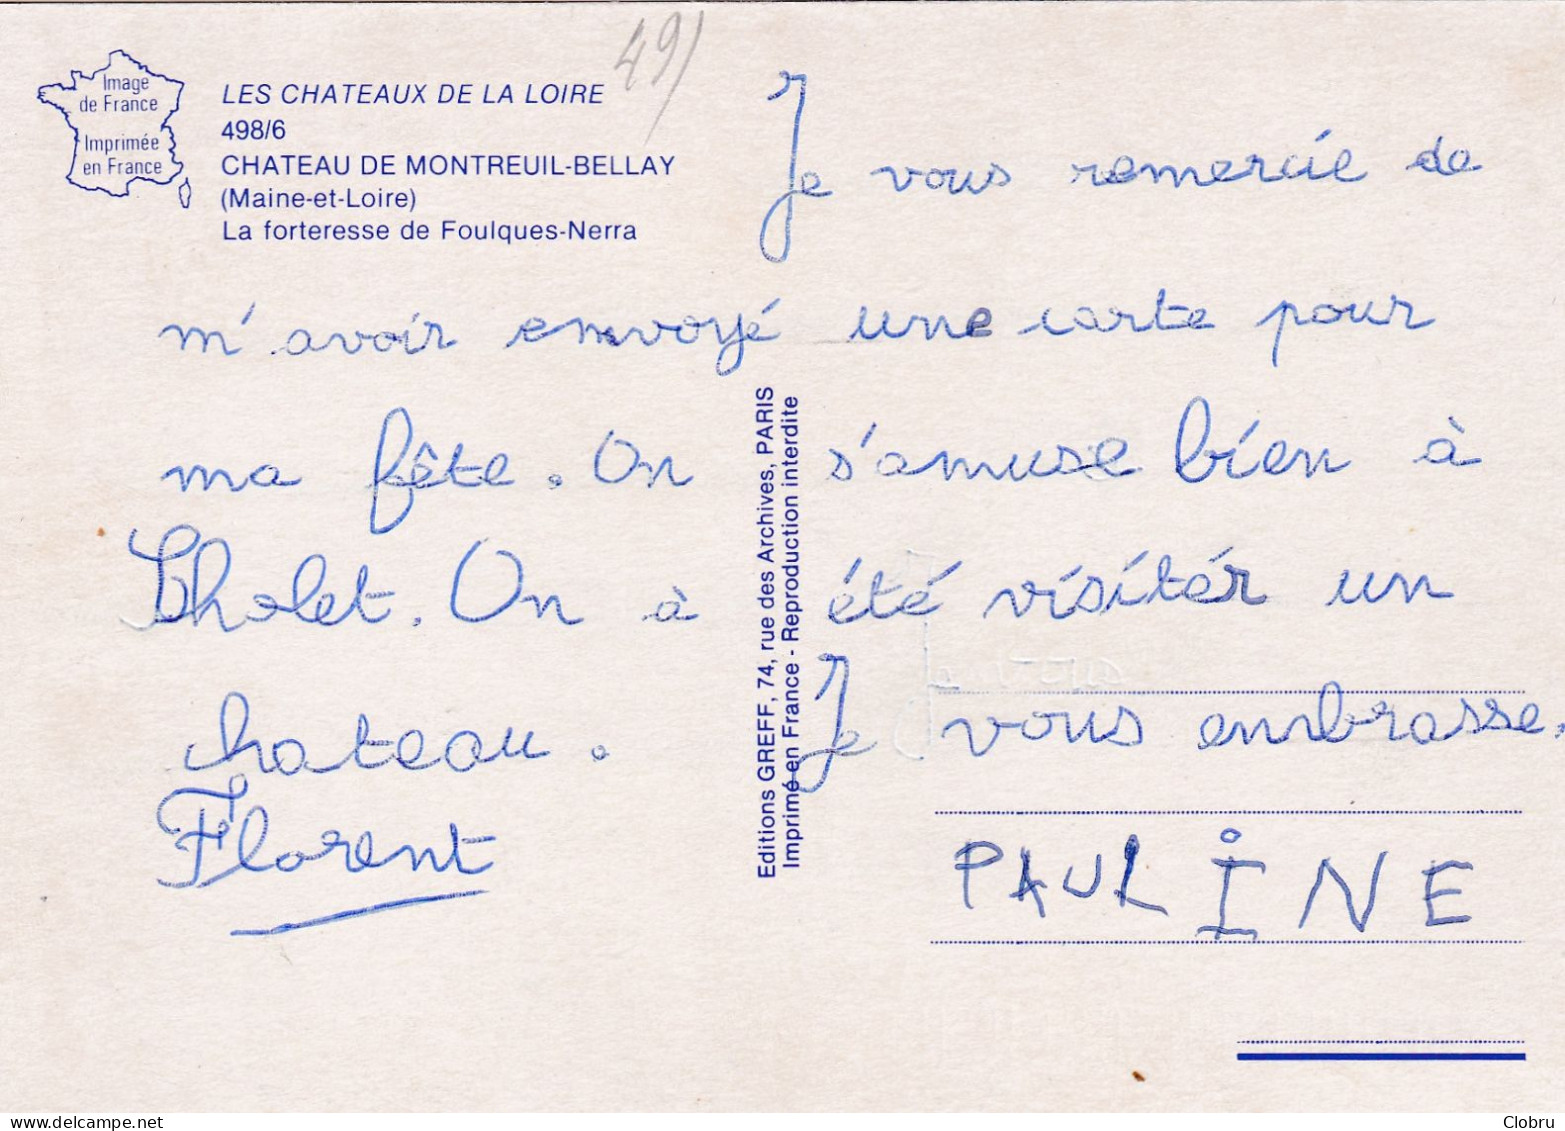 49)
Image
de France
Imprimée
en France
LES CHATEAUX DE LA LOIRE
498/6
CHATEAU DE MONTREUIL-BELLAY
(Maine-et-Loire)
La forteresse de Foulques-Nerra
Je vous remercie de
m'avoir envoyé une carte pour
ma fête. On s'amuse bien à
Cholet. On à été visitér un
chateau. Je vous embrasse.
Florent
PAULINE
Editions GREFF, 74, rue des Archives, PARIS
Imprimé en France - Reproduction interdite
delcampe.net
Clobru